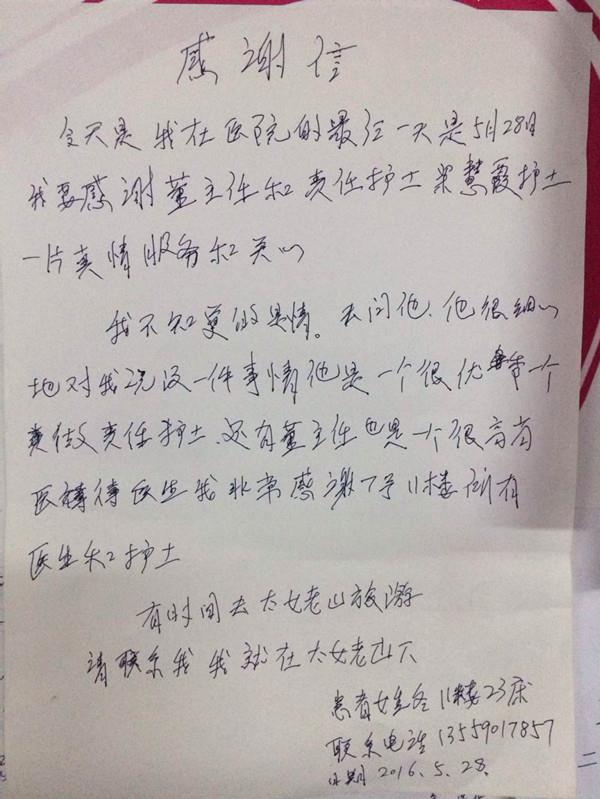 感谢信
今天是我在医院的最后一天是5月28日
我要感谢董主任和责任护士梁慧霞护士
一片真情服务和关心
我不知道的是情。去问他、他很细心
地对我说没一件事情他是一个很优秀一个
责任护士、还有董主任也是一个很高尚
医德待医生我非常感谢了 11楼所有
医生和护士
有时间去太姥山旅游
请联系我我就在太姥山下
患者 11楼23床
联系电话 13559017857
日期 2016.5.28.